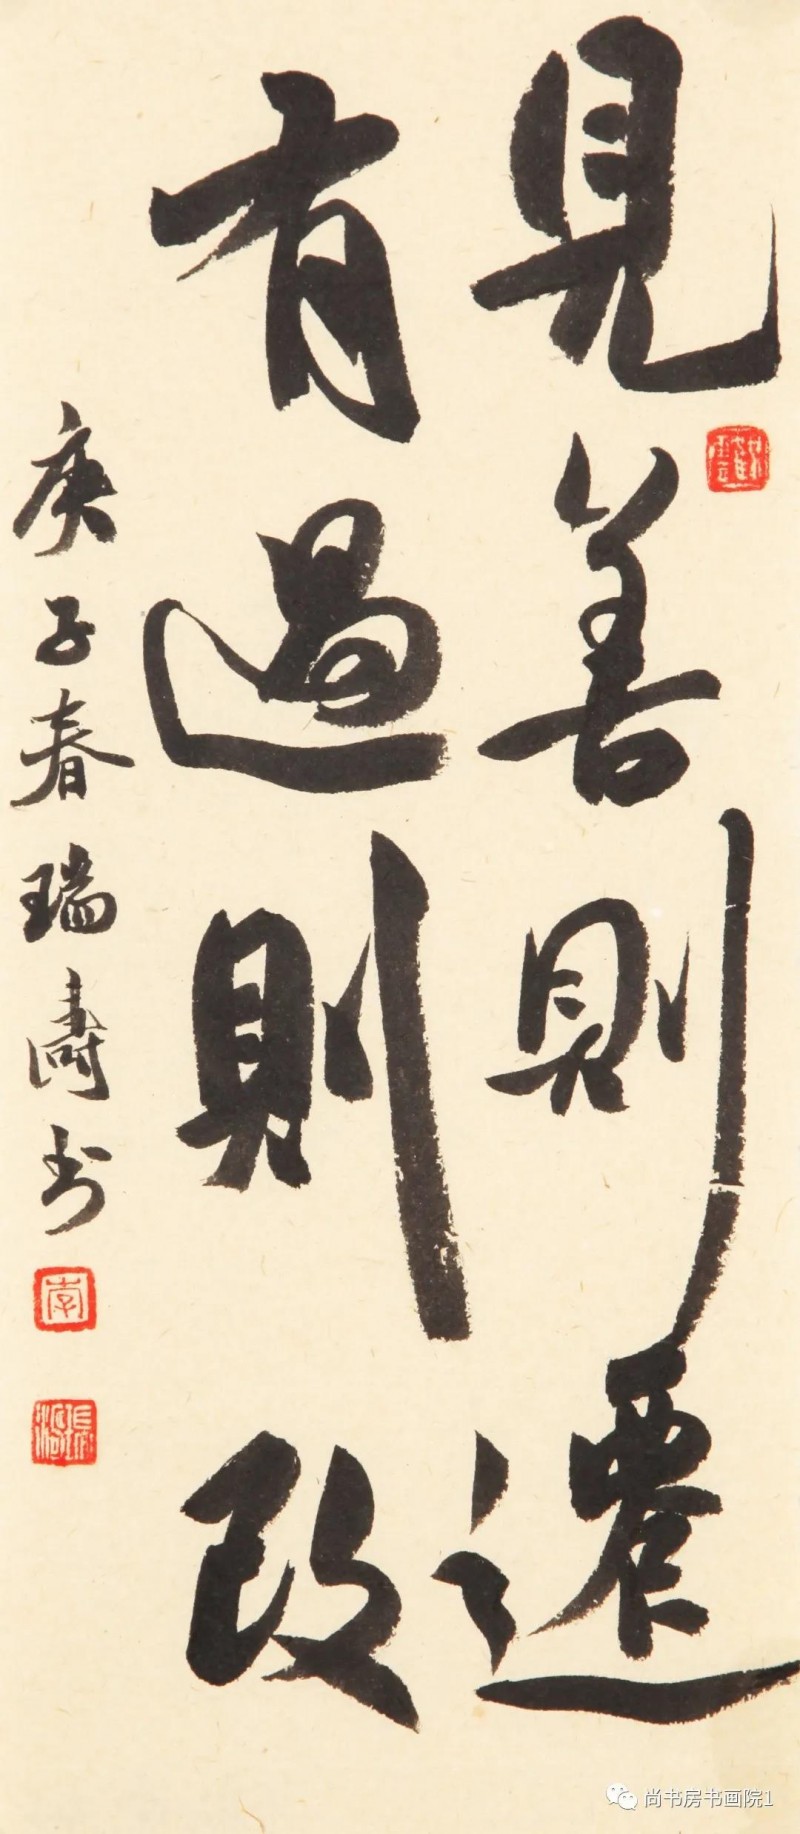 見善則遷
有過則改
庚子春瑞濤书
尚书房书画院1